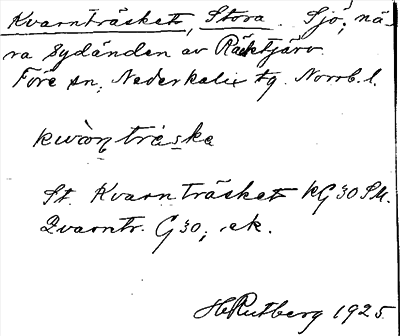 Kvarnträsket, Stora. Sjö; nä-
ra sydänden av Räktjärv
Töre sn, Nederkalix tg. Norrb. l.
kwàn̩ träska
St. Kvarnträsket kG 30 SM.
Qvarntr. G 30; ek.
H Rutberg 1925.